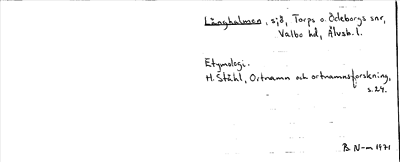 Långhalmen, sjö, Torps o. Ödeborgs snr,
Valbo hd, Älvsb. l.
Etymologi.
H. Ståhl, Ortnamn och ortnamnsforskning,
s. 24.
B N-m 1971